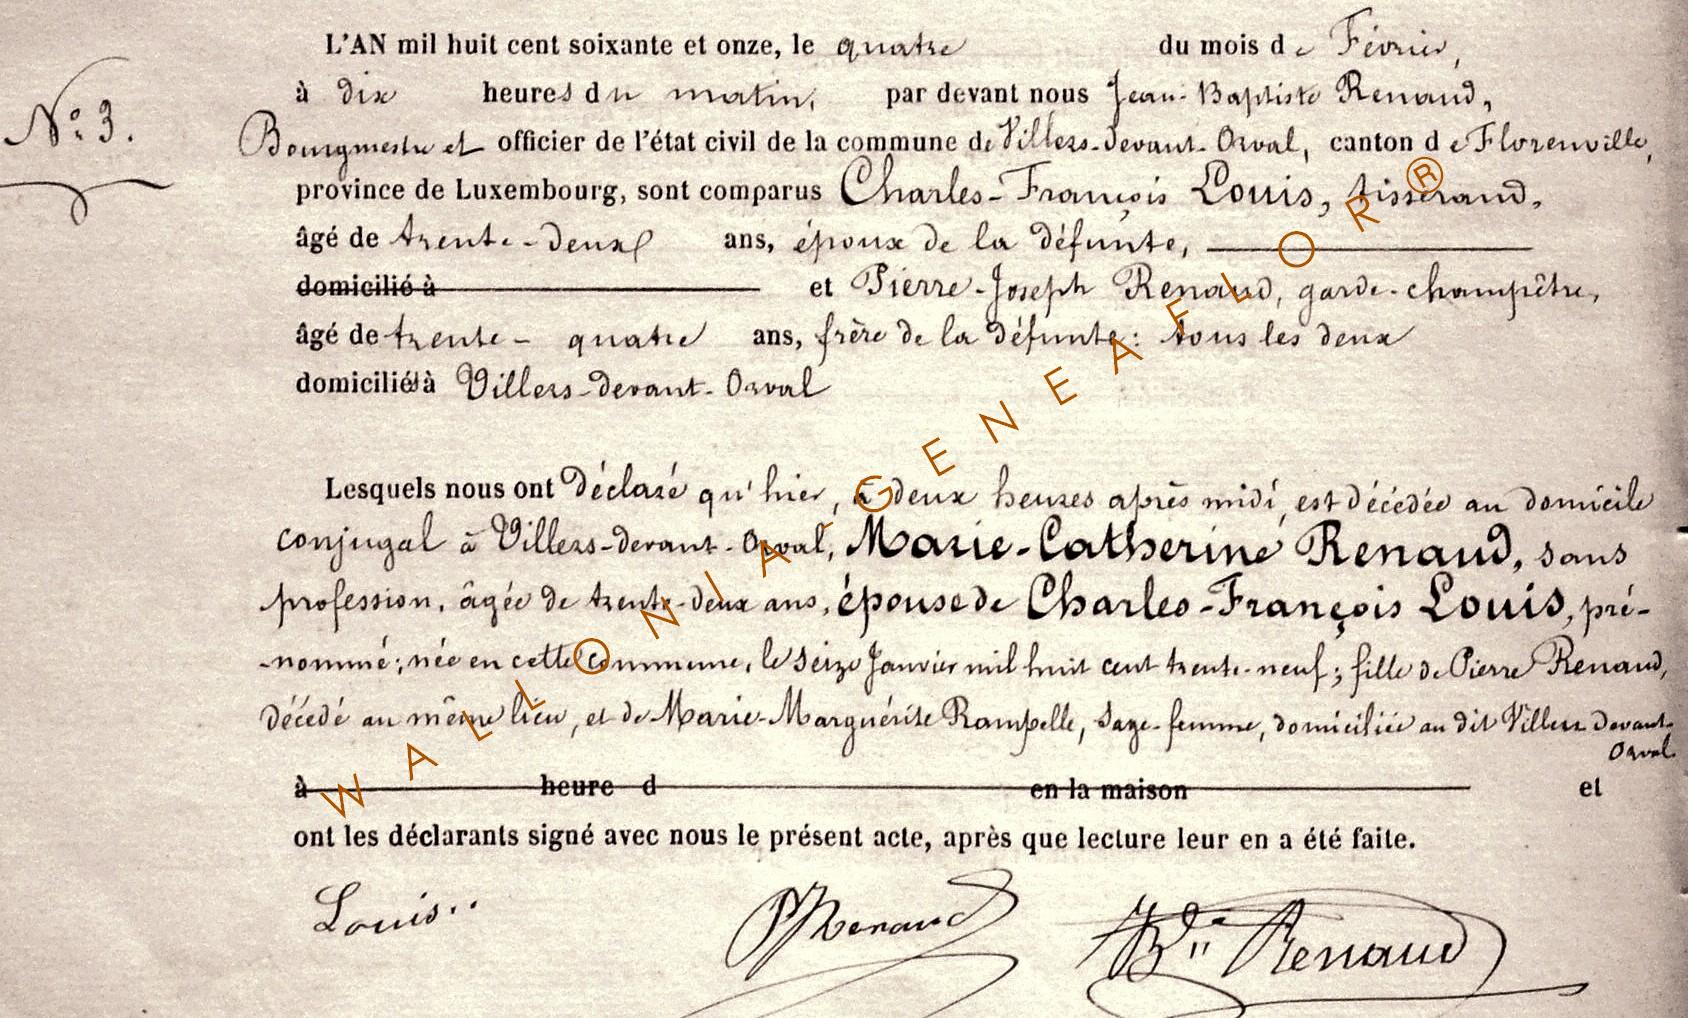 L'AN mil huit cent soixante et onze, le quatre du mois de Février,
à dix heures du matin, par devant nous Jean-Baptiste Renaud,
N° 3.
Bourgmestre et officier de l'état civil de la commune de Villers-devant-Orval, canton de Florenville,
province de Luxembourg, sont comparus Charles-François Louis, tisserand,
âgé de trente-deux ans, époux de la défunte,
domicilié à et Pierre-Joseph Renaud, garde-champêtre,
âgé de trente-quatre ans, frère de la défunte: tous les deux
domiciliés à Villers-devant-Orval
Lesquels nous ont déclaré qu'hier, à deux heures après midi, est décédée au domicile
conjugal à Villers-devant-Orval, Marie-Catherine Renaud, sans
profession, âgée de trente-deux ans, épouse de Charles-François Louis, pré-
-nommé; née en cette commune, le seize Janvier mil huit cent trente-neuf; fille de Pierre Renaud,
décédé au même lieu, et de Marie-Marguérite Rampelle, sage-femme, domiciliée au dit Villers devant-
Orval.
à heure d en la maison et
ont les déclarants signé avec nous le présent acte, après que lecture leur en a été faite.
Louis.. PJRenaud JBte Renaud
WALLONIA-GENEAFLOR®